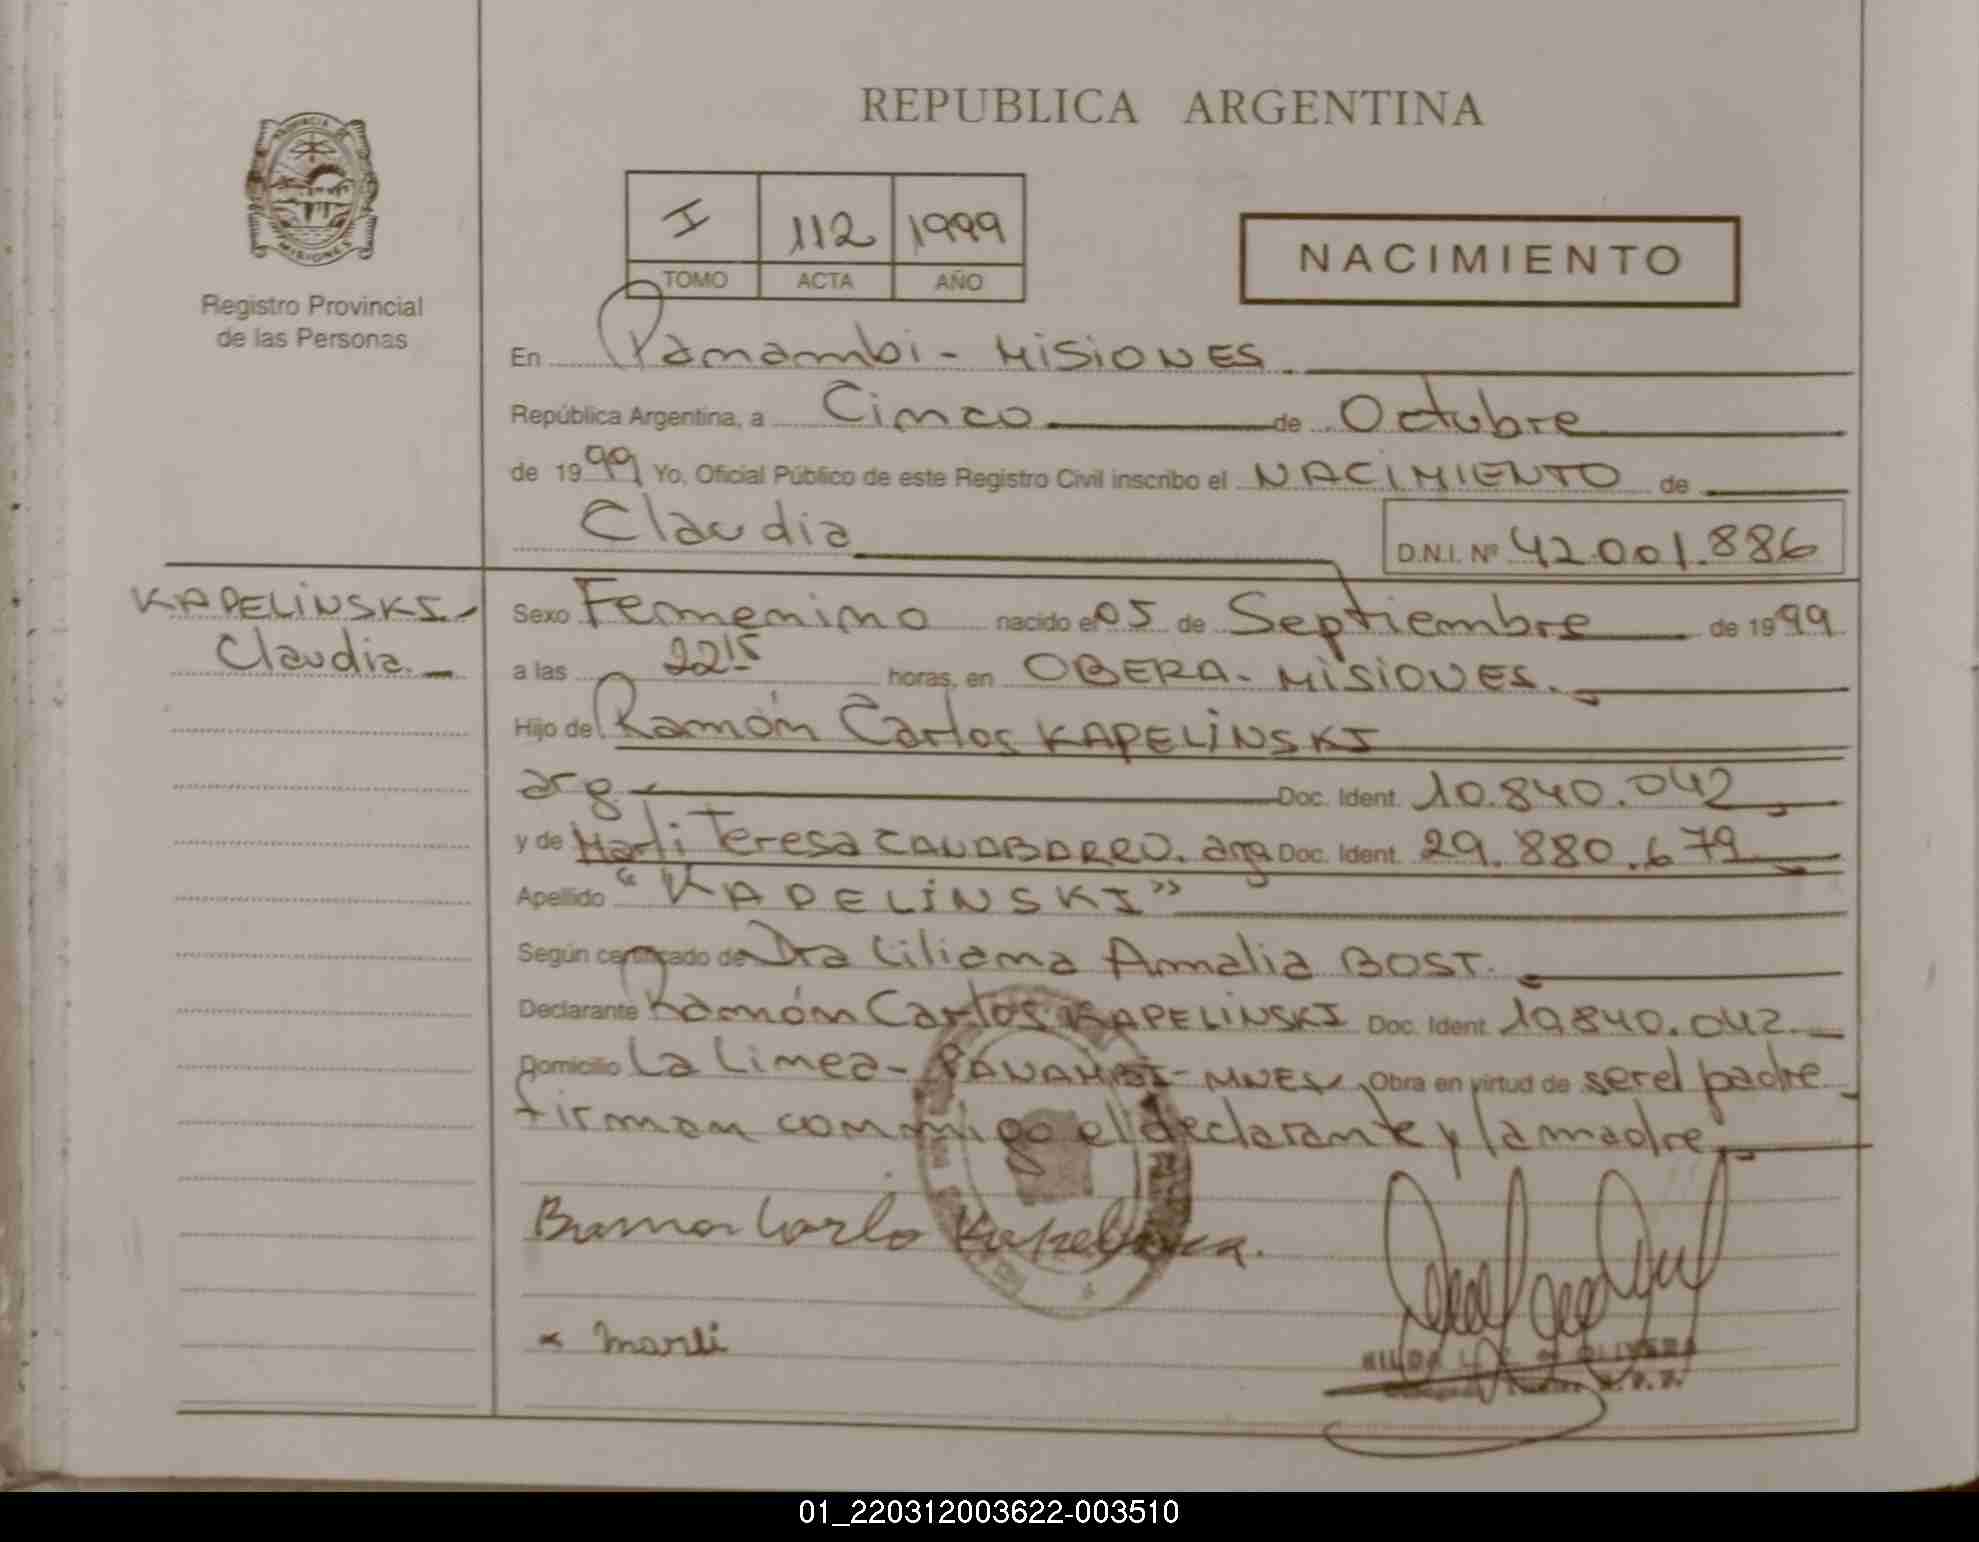 REPUBLICA ARGENTINA
PROVINCIA DE
MISIONES
Registro Provincial
de las Personas
I 112 1999
TOMO ACTA AÑO
NACIMIENTO
En Panambi - MISIONES
República Argentina, a Cinco de Octubre
de 1999 Yo, Oficial Público de este Registro Civil inscribo el NACIMIENTO de
Claudia
D.N.I. Nº 42.001.886
KAPELINSKI.-
Claudia.
Sexo Femenino nacido el 05 de Septiembre de 1999
a las 2215 horas, en OBERA - MISIONES.
Hijo de Ramón Carlos KAPELINSKI
arg Doc. Ident. 10.840.042
y de Marli Teresa CANABARRO. arg Doc. Ident. 29.880.679
Apellido "KAPELINSKI"
Según certificado de Dra Liliana Amalia BOST.
Declarante Ramón Carlos KAPELINSKI Doc. Ident. 10.840.042.
Domicilio La Linea - PANAMBI - MNES Obra en virtud de ser el padre
firman conmigo el declarante y la madre
Carlo
marli
01_220312003622-003510